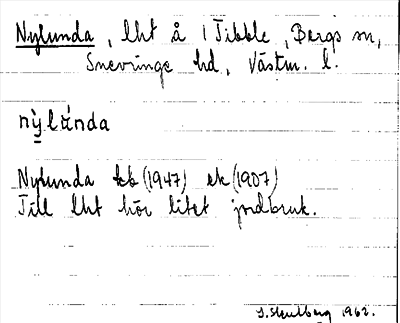 Nylunda, lht å 1 Tibble, Bergs sn,
Snevringe hd, Västm. l.
nỳlúnda
Nylunda tk (1947) ek (1907)
Till lht hör litet jordbruk.
1962.